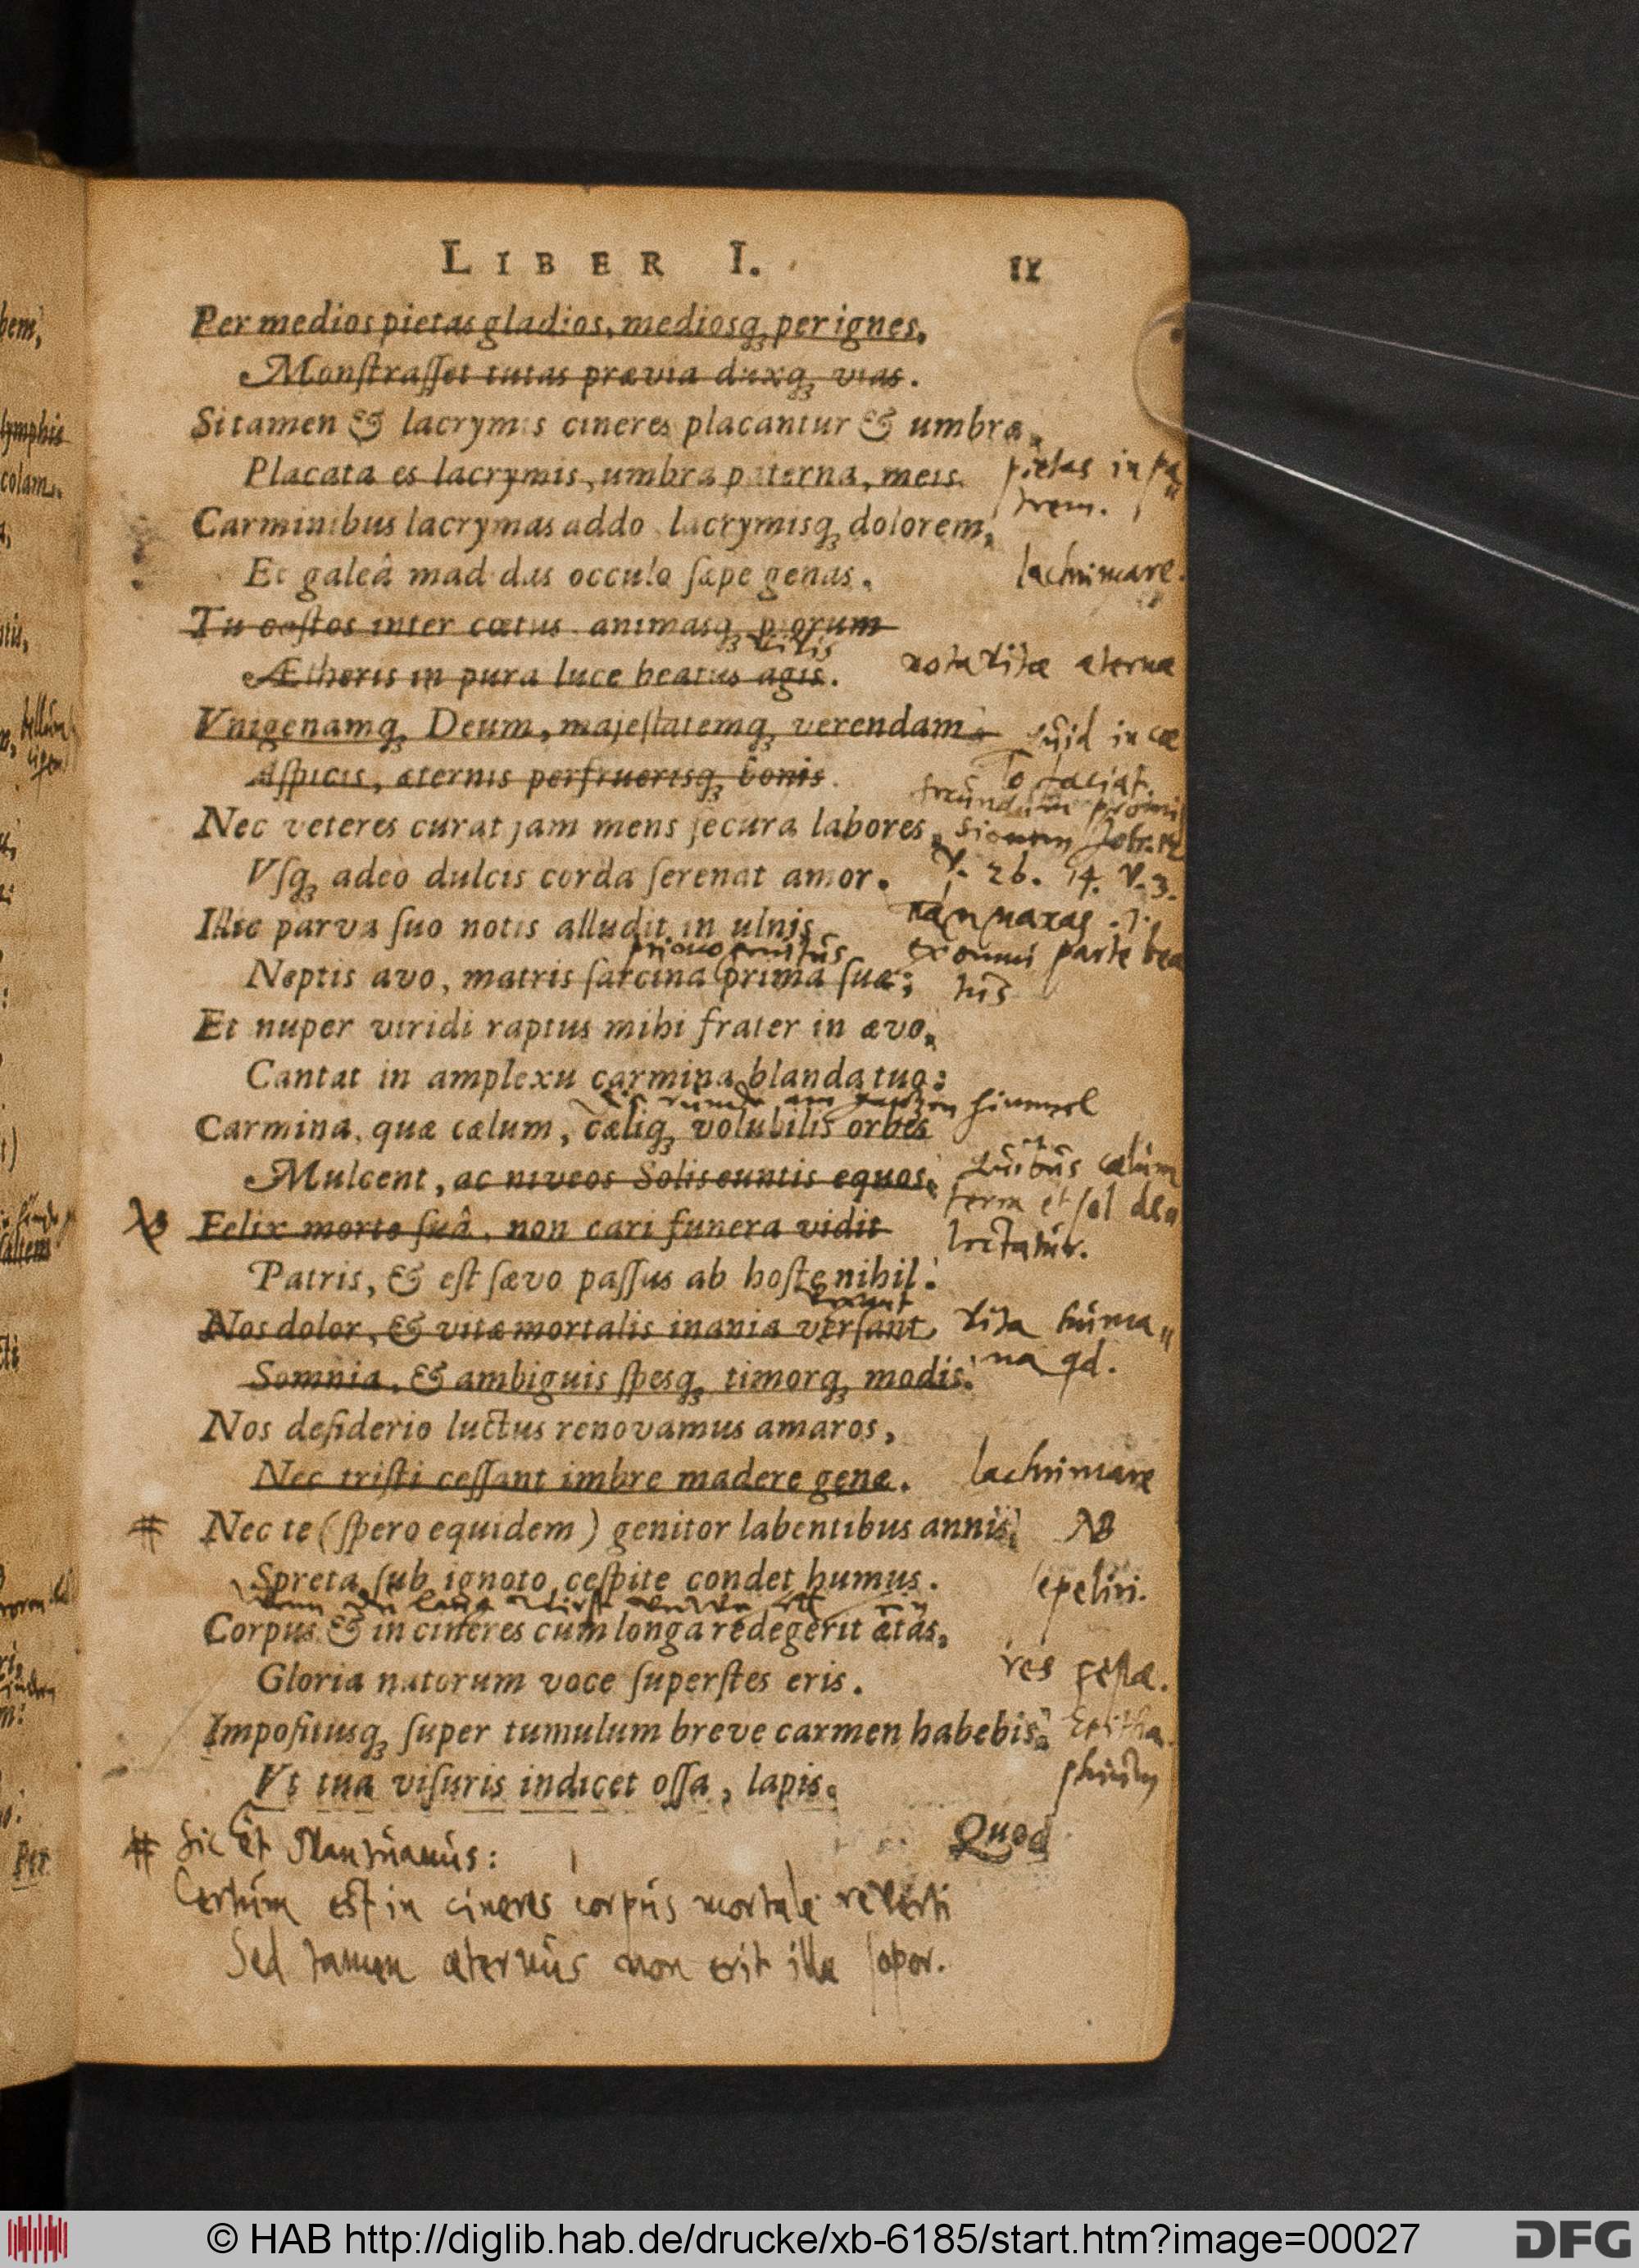 LIBER I. 11
Per medios pietas gladios, mediosq; per ignes,
Monſtraſſet tutas prævia duxq; vias.
Si tamen & lacrymis cineres placantur & umbræ,
Placata es lacrymis, umbra paterna, meis.
pietas in pa„
trem.
Carminibus lacrymas addo lacrymisq; dolorem,
Et galeâ madidas occulo ſæpe genas.
lachrimare.
Tu caſtos inter cœtus animasq; piorum
Ætheris in pura luce beatus agis.
vivis
nota vitæ æternæ
Vnigenamq; Deum, majeſtatemq; verendam
quid in cœ
Aſpicis, æternis perfruerisq; bonis.
lo faciat.
secundum promis
Nec veteres curat jam mens ſecura labores,
sionem Joh. 12
Vſq; adeo dulcis corda ſerenat amor.
V. 26. 14. V. 3.
Illic parva ſuo notis alludit in ulnis
ex omni parte bea
primogenitus
Neptis avo, matris ſarcina prima ſuæ;
tus
Et nuper viridi raptus mihi frater in ævo,
Cantat in amplexu carmina blanda tuo:
himmel
Carmina, quæ cælum, cæliq; volubilis orbes
Mulcent, ac niveos Solis euntis equos.
quibus cælum
terra et sol de„
lectatur.
NB Felix morte ſuâ, non cari funera vidit
Patris, & eſt ſævo paſſus ab hoſte nihil.
Nos dolor, & vitæ mortalis inania verſant,
vita huma„
Somnia, & ambiguis ſpesq; timorq; modis.
na qd.
Nos deſiderio luctus renovamus amaros,
Nec triſti ceſſant imbre madere genæ.
lachrimare
# Nec te (ſpero equidem) genitor labentibus annis,
NB
Spreta ſub ignoto ceſpite condet humus.
sepeliri.
Corpus & in cineres cum longa redegerit ætas,
Gloria natorum voce ſuperſtes eris.
res gestæ.
Impoſitusq; ſuper tumulum breve carmen habebis,
Epitha
Vt tua viſuris indicet oſſa, lapis.
phium
Quod
# Sic et Mantuanus:
Certum est in cineres corpus mortale reverti
Sed tamen æternus non erit ille sopor.
bem,
lymphis
colam,
Per
© HAB http://diglib.hab.de/drucke/xb-6185/start.htm?image=00027
DFG